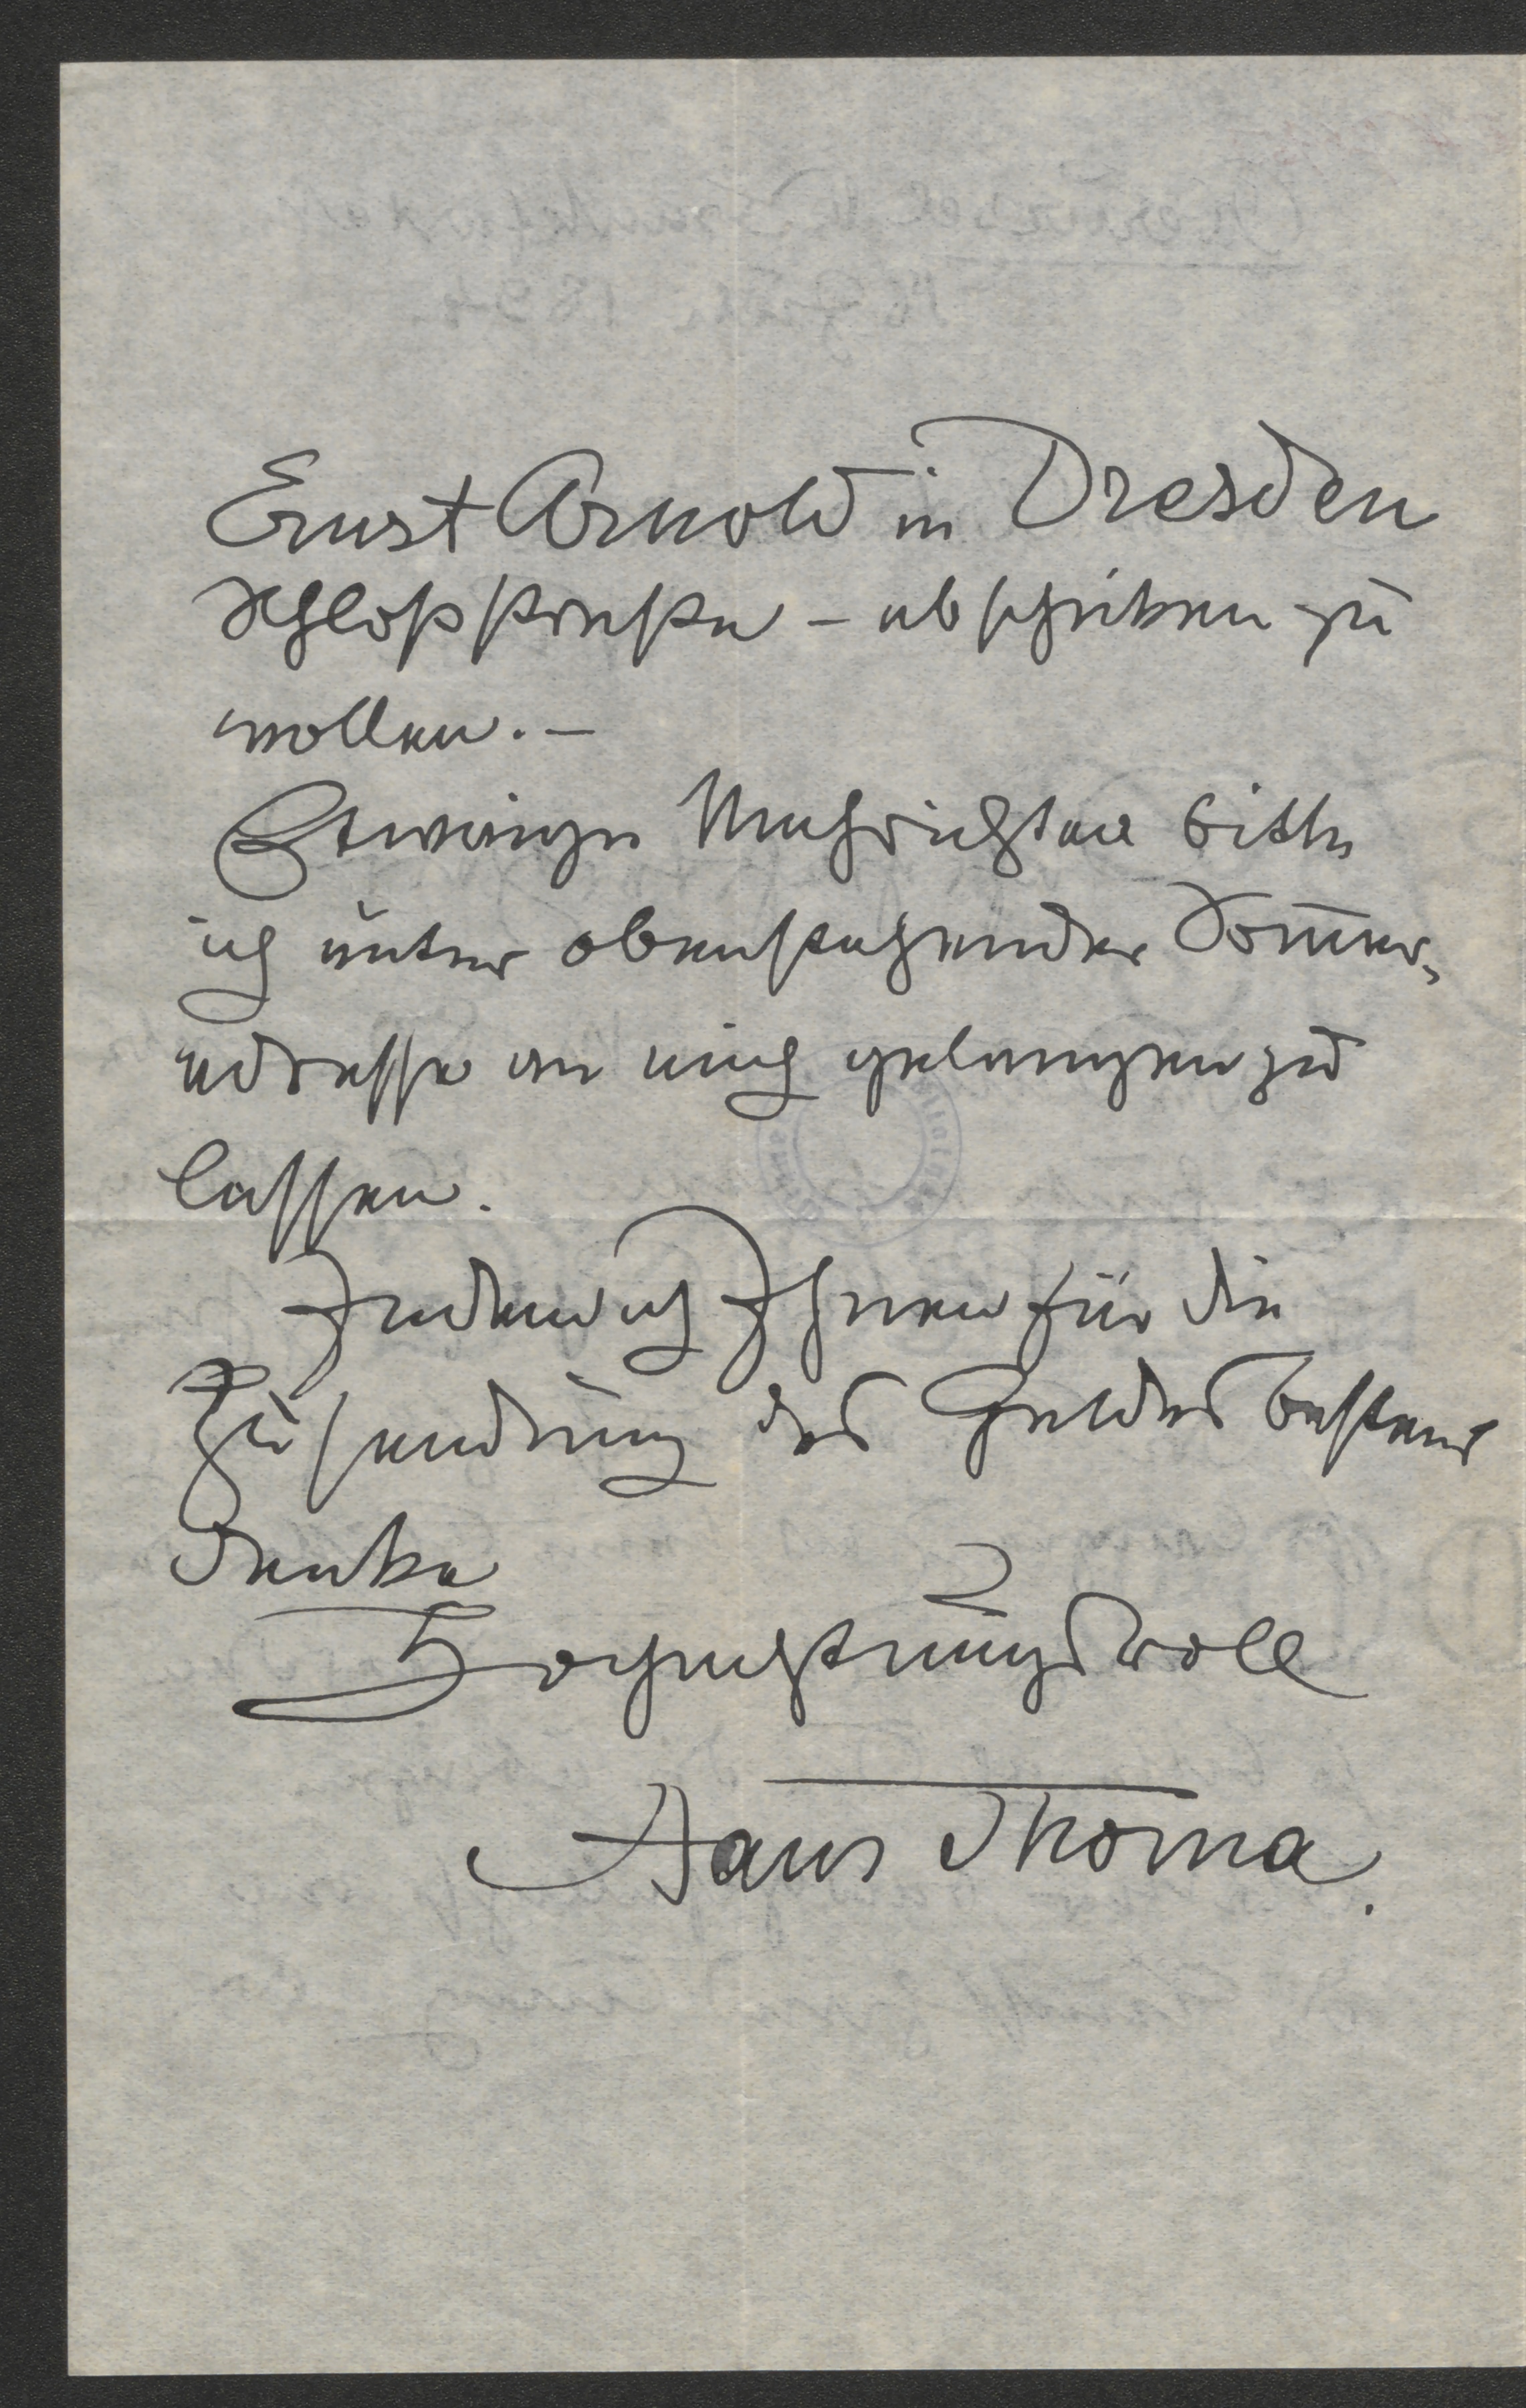 Ernst Arnold in Dresden
Schloßstraße – abschicken zu
wollen. –
Etwaige Nachrichten bitte
ich unter obenstehender Sommer-
adresse an mich gelangen zu
lassen.
Indem ich Ihnen für die
Zusendung des Geldes bestens
danke
Hochachtungsvoll
Hans Thoma.